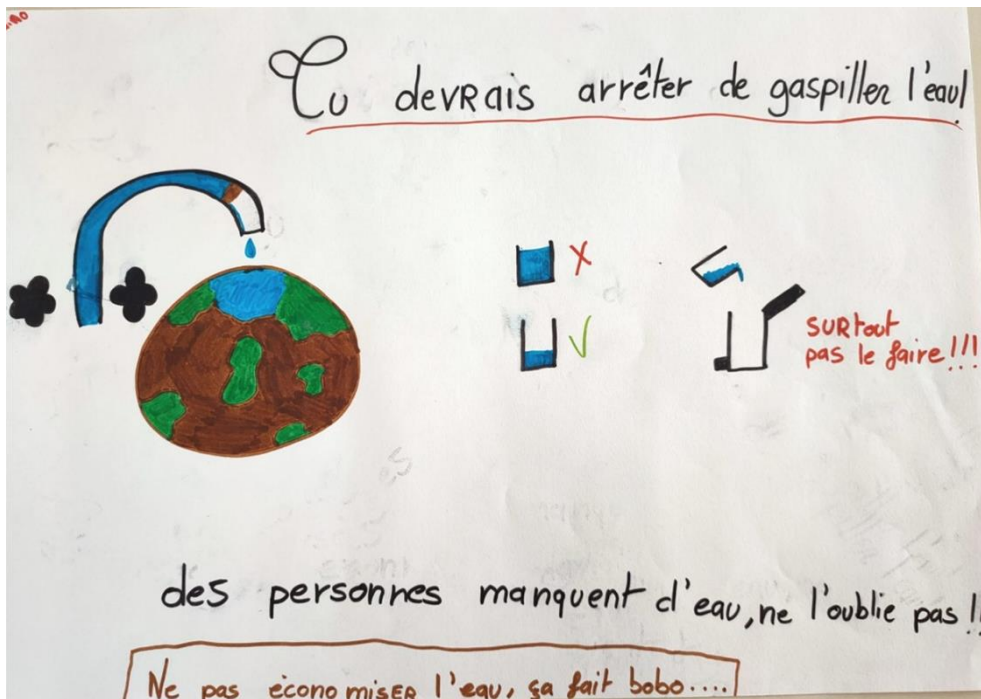 Tu devrais arrêter de gaspiller l'eau!
surtout
pas le faire!!!
des personnes manquent d'eau, ne l'oublie pas !!
Ne pas économiser l'eau, ça fait bobo....